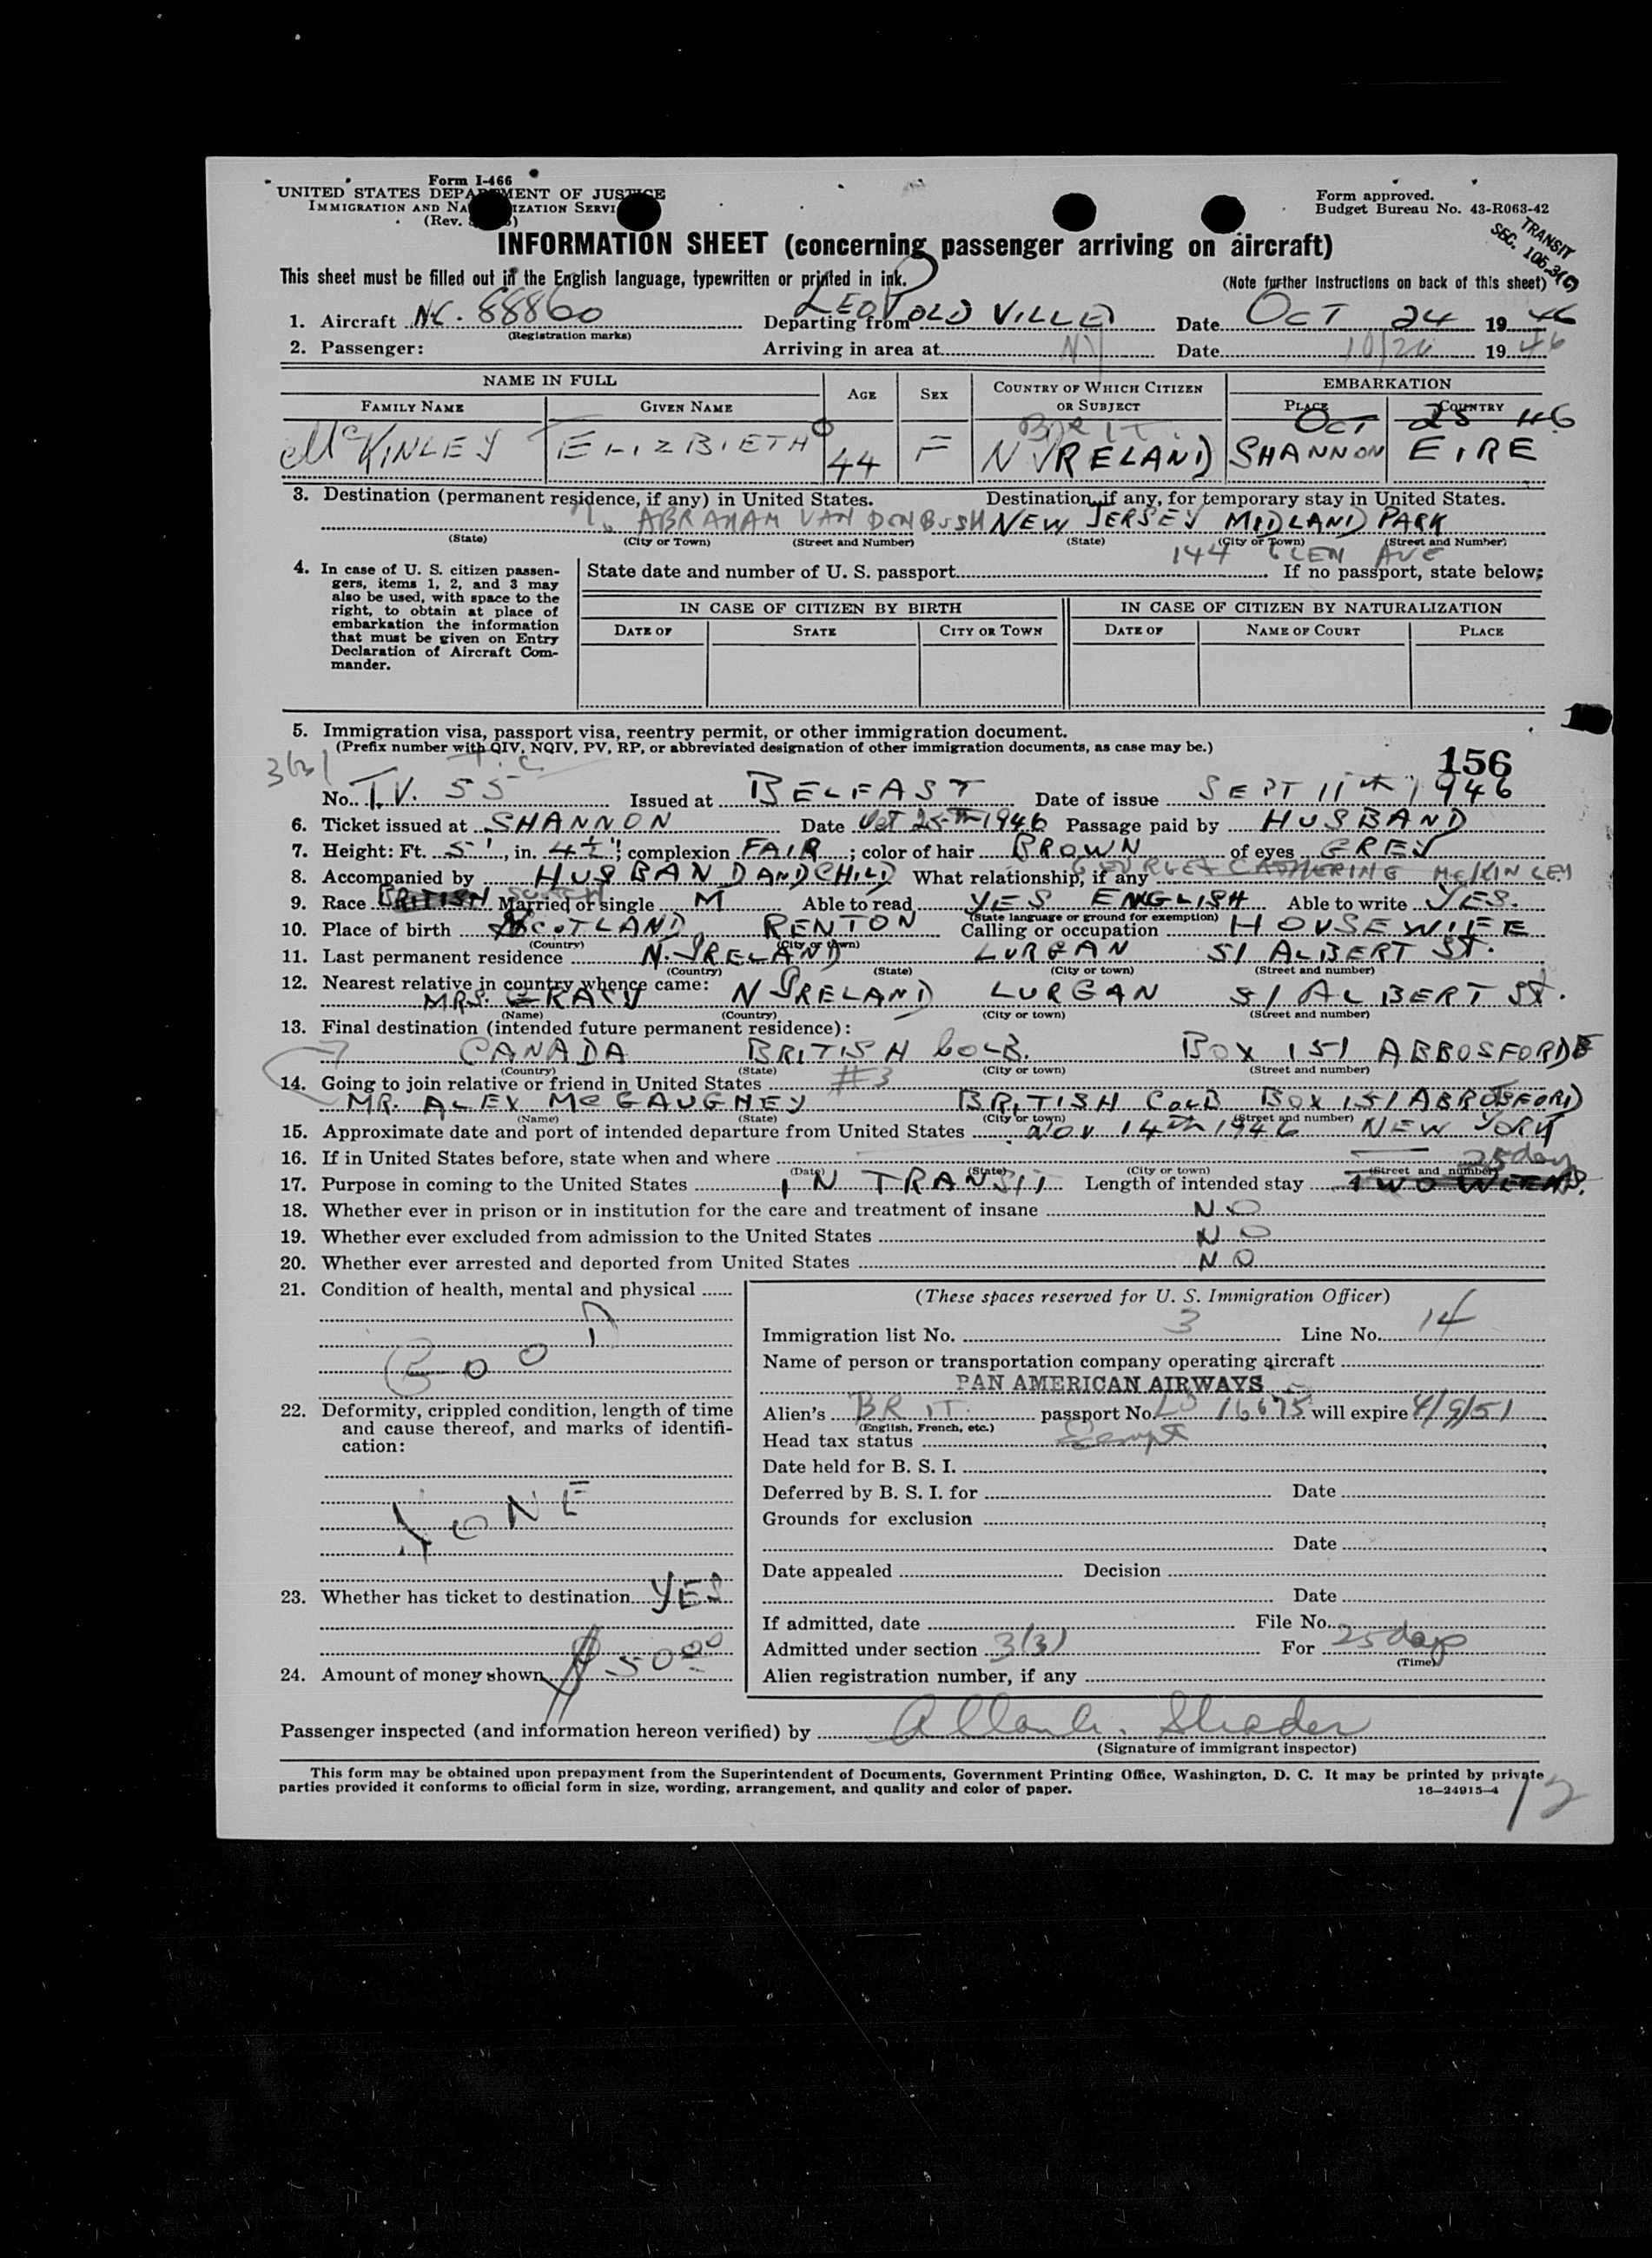 Form I-466
UNITED STATES DEPARTMENT OF JUSTICE
IMMIGRATION AND NATURALIZATION SERVICE
(Rev.
Form approved.
Budget Bureau No. 43-R063-42
TRANSIT
SEC. 105.3(
INFORMATION SHEET (concerning passenger arriving on aircraft)
This sheet must be filled out in the English language, typewritten or printed in ink.
(Note further instructions on back of this sheet)
1. Aircraft NC. 88860 Departing from LEOPOLDVILLE Date OCT 24 1946
(Registration marks)
2. Passenger: Arriving in area at NY Date 10/26 1946
NAME IN FULL AGE SEX COUNTRY OF WHICH CITIZEN OR SUBJECT EMBARKATION
FAMILY NAME GIVEN NAME PLACE COUNTRY
BRIT. OCT 25 46
McKINLEY ELIZBIETH 44 F N IRELAND SHANNON EIRE
3. Destination (permanent residence, if any) in United States. Destination, if any, for temporary stay in United States.
ABRAHAM VAN DENBUSH NEW JERSEY MIDLAND PARK
(State) (City or Town) (Street and Number) (State) (City or Town) (Street and Number)
144 GLEN AVE
4. In case of U. S. citizen passengers, items 1, 2, and 3 may also be used, with space to the right, to obtain at place of embarkation the information that must be given on Entry Declaration of Aircraft Commander.
State date and number of U. S. passport If no passport, state below:
IN CASE OF CITIZEN BY BIRTH IN CASE OF CITIZEN BY NATURALIZATION
DATE OF STATE CITY OR TOWN DATE OF NAME OF COURT PLACE
5. Immigration visa, passport visa, reentry permit, or other immigration document.
(Prefix number with QIV, NQIV, PV, RP, or abbreviated designation of other immigration documents, as case may be.)
3(3) 156
No. T.V. 55 Issued at BELFAST Date of issue SEPT 11th 1946
6. Ticket issued at SHANNON Date Oct 25th 1946 Passage paid by HUSBAND
7. Height: Ft. 5', in. 4½"; complexion FAIR; color of hair BROWN of eyes GREY
8. Accompanied by HUSBAND AND CHILD What relationship, if any GEORGE & CATHERINE McKINLEY
9. Race BRITISH SCOTCH Married or single M Able to read YES ENGLISH Able to write YES.
(State language or ground for exemption)
10. Place of birth SCOTLAND RENTON Calling or occupation HOUSEWIFE
(Country) (City or town)
11. Last permanent residence N. IRELAND LURGAN 51 ALBERT ST.
(Country) (State) (City or town) (Street and number)
12. Nearest relative in country whence came:
MRS. GRACY N IRELAND LURGAN 51 ALBERT St.
(Name) (Country) (City or town) (Street and number)
13. Final destination (intended future permanent residence):
CANADA BRITISH COLB. BOX 151 ABBOSFORDE
(Country) (State) (City or town) (Street and number)
14. Going to join relative or friend in United States #3
MR. ALEX McGAUGHEY BRITISH COLB BOX 151 ABBOTSFORD
(Name) (State) (City or town) (Street and number)
15. Approximate date and port of intended departure from United States NOV 14th 1946 NEW YORK
16. If in United States before, state when and where
(Date) (State) (City or town) (Street and number)
25 day
17. Purpose in coming to the United States IN TRANSIT Length of intended stay TWO WEEKS.
18. Whether ever in prison or in institution for the care and treatment of insane NO
19. Whether ever excluded from admission to the United States NO
20. Whether ever arrested and deported from United States NO
21. Condition of health, mental and physical
GOOD
22. Deformity, crippled condition, length of time and cause thereof, and marks of identification:
NONE
23. Whether has ticket to destination YES
24. Amount of money shown $ 50 00
(These spaces reserved for U. S. Immigration Officer)
Immigration list No. 3 Line No. 14
Name of person or transportation company operating aircraft
PAN AMERICAN AIRWAYS
Alien's BRIT. passport No. LD 16675 will expire 4/9/51
(English, French, etc.)
Head tax status Exempt
Date held for B. S. I.
Deferred by B. S. I. for Date
Grounds for exclusion
Date
Date appealed Decision
Date
If admitted, date File No.
Admitted under section 3(3) For 25 days
(Time)
Alien registration number, if any
Passenger inspected (and information hereon verified) by
(Signature of immigrant inspector)
This form may be obtained upon prepayment from the Superintendent of Documents, Government Printing Office, Washington, D. C. It may be printed by private
parties provided it conforms to official form in size, wording, arrangement, and quality and color of paper.
16—24915-4
12